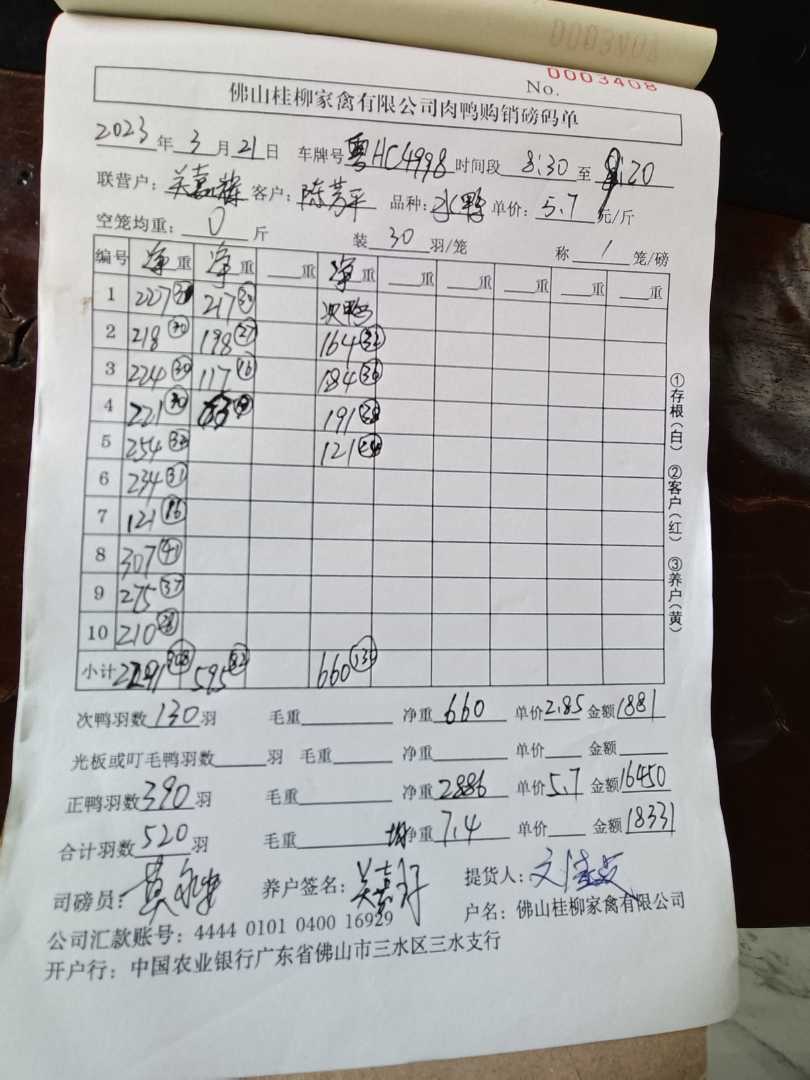 No. 0003408
佛山桂柳家禽有限公司肉鸭购销磅码单
2023年3月21日 车牌号粤HC4998时间段8:30至9:20
联营户:吴嘉辉 客户:陈芳平 品种:水鸭 单价:5.7元/斤
空笼均重:0斤 装30羽/笼 称1笼/磅
编号 净重 净重 重 净重 重 重 重 重 重
1 227 217(30) 次鸭
2 218(30) 198(27) 164(32)
3 224(30) 117(16) 184(36)
4 221(30) 191(38)
5 254 121(24)
6 234(31)
7 121(16)
8 307(41)
9 275(37)
10 210(28)
小计 2291(308) 595(82) 660(130)
次鸭羽数130羽 毛重 净重660 单价2.85 金额1881
光板或叮毛鸭羽数 羽 毛重 净重 单价 金额
正鸭羽数390羽 毛重 净重2886 单价5.7 金额16450
合计羽数520羽 毛重 均净重7.4 单价 金额18331
司磅员: 养户签名:吴嘉 提货人:
公司汇款账号:4444 0101 0400 16929 户名:佛山桂柳家禽有限公司
开户行:中国农业银行广东省佛山市三水区三水支行
①存根(白) ②客户(红) ③养户(黄)